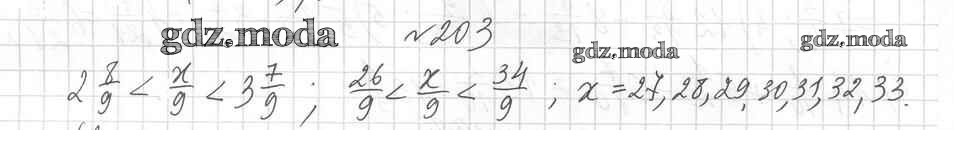 gdz.moda №203 gdz.moda gdz.moda
2 8/9 < x/9 < 3 7/9 ; 26/9 < x/9 < 34/9 ; x = 27, 28, 29, 30, 31, 32, 33.